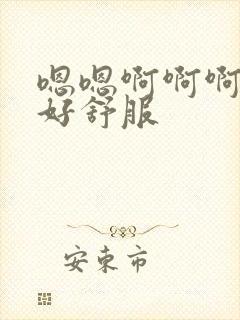 嗯嗯啊啊啊
好舒服
安东市